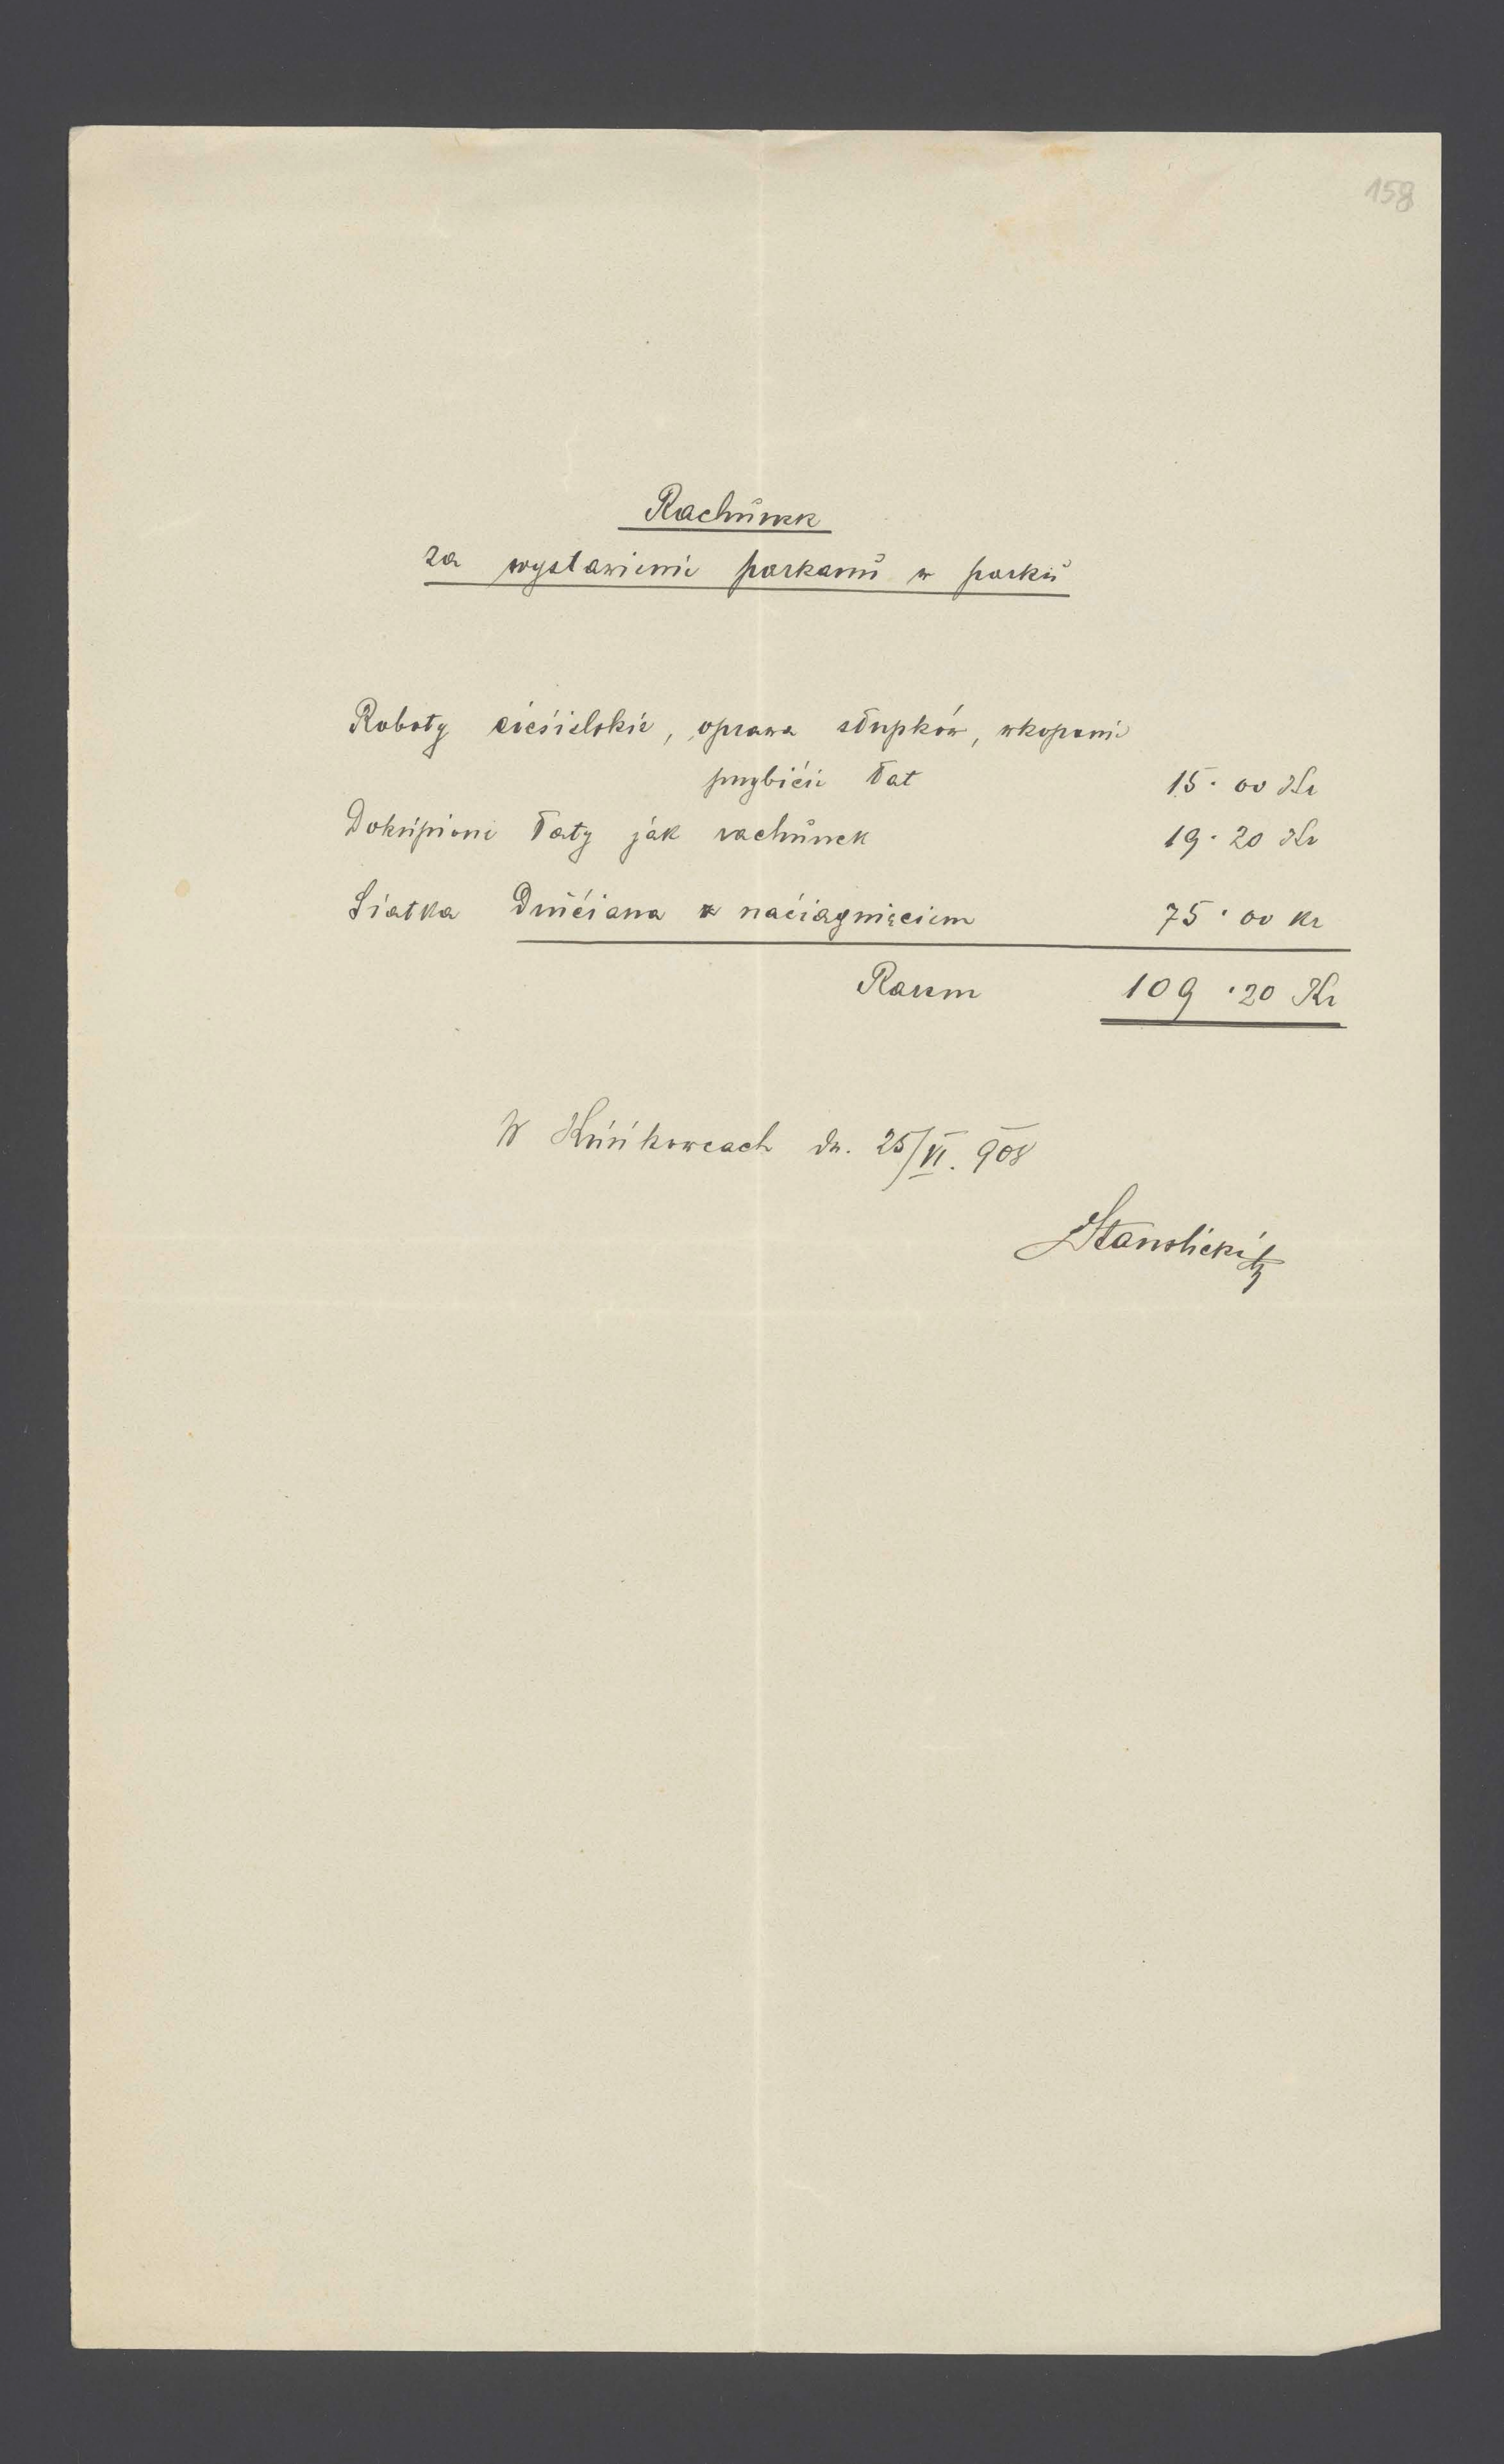 158
Rachunek
za wystawienie parkanu w parku
Roboty ciesielskie, oprawa słupków, wkopanie
przybicie łat 15·00 Kr
Dokupione łaty jak rachunek 19·20 Kr
Siatka druciana z naciągnięciem 75·00 Kr
Razem 109·20 Kr
W Kuńkowcach dn. 25/VI. 908